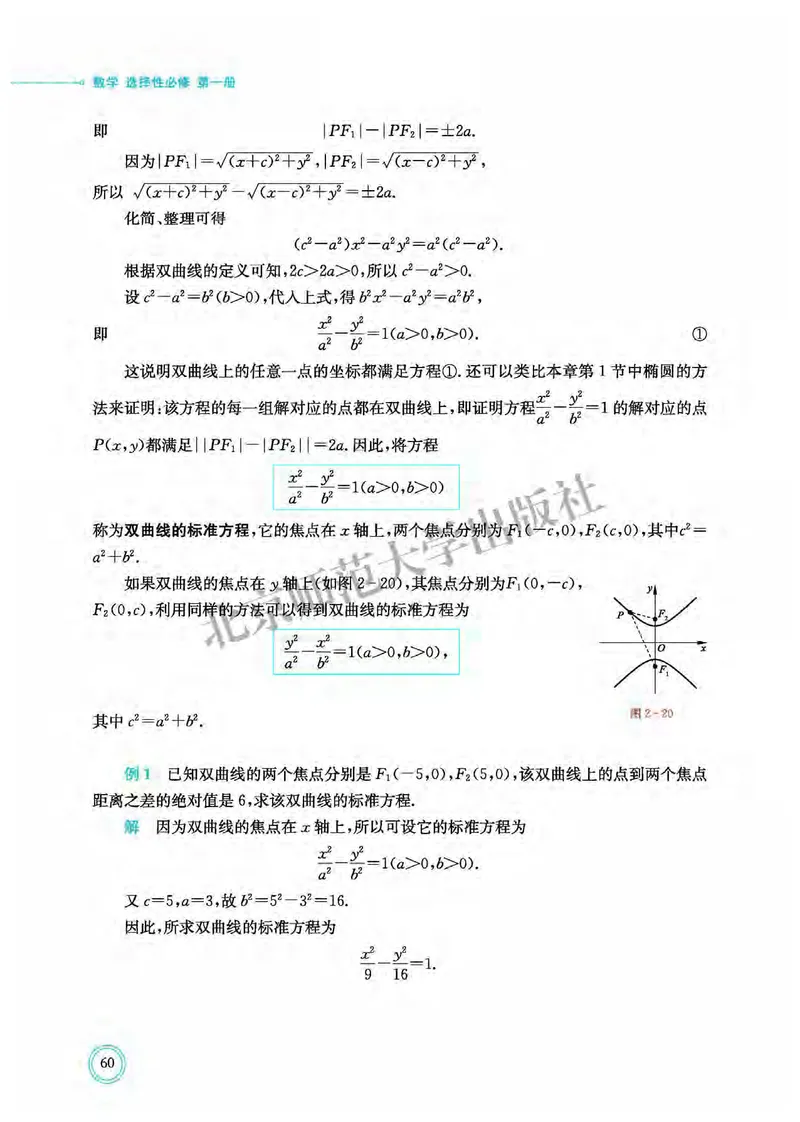 数学 选择性必修 第一册
即 |PF₁|-|PF₂|=±2a.
因为|PF₁|=√((x+c)²+y²),|PF₂|=√((x-c)²+y²),
所以 √((x+c)²+y²)-√((x-c)²+y²)=±2a.
化简、整理可得
(c²-a²)x²-a²y²=a²(c²-a²).
根据双曲线的定义可知,2c>2a>0,所以 c²-a²>0.
设 c²-a²=b²(b>0),代入上式,得 b²x²-a²y²=a²b²,
即 x²/a²-y²/b²=1(a>0,b>0). ①
这说明双曲线上的任意一点的坐标都满足方程①.还可以类比本章第 1 节中椭圆的方
法来证明:该方程的每一组解对应的点都在双曲线上,即证明方程x²/a²-y²/b²=1 的解对应的点
P(x,y)都满足||PF₁|-|PF₂||=2a.因此,将方程
x²/a²-y²/b²=1(a>0,b>0)
称为双曲线的标准方程,它的焦点在 x 轴上,两个焦点分别为 F₁(-c,0),F₂(c,0),其中c²=
a²+b².
如果双曲线的焦点在 y 轴上(如图 2-20),其焦点分别为F₁(0,-c),
F₂(0,c),利用同样的方法可以得到双曲线的标准方程为
y²/a²-x²/b²=1(a>0,b>0),
其中 c²=a²+b².
y
P
F₂
O
x
F₁
图 2-20
例 1 已知双曲线的两个焦点分别是 F₁(-5,0),F₂(5,0),该双曲线上的点到两个焦点
距离之差的绝对值是 6,求该双曲线的标准方程.
解 因为双曲线的焦点在 x 轴上,所以可设它的标准方程为
x²/a²-y²/b²=1(a>0,b>0).
又 c=5,a=3,故 b²=5²-3²=16.
因此,所求双曲线的标准方程为
x²/9-y²/16=1.
60
北京师范大学出版社